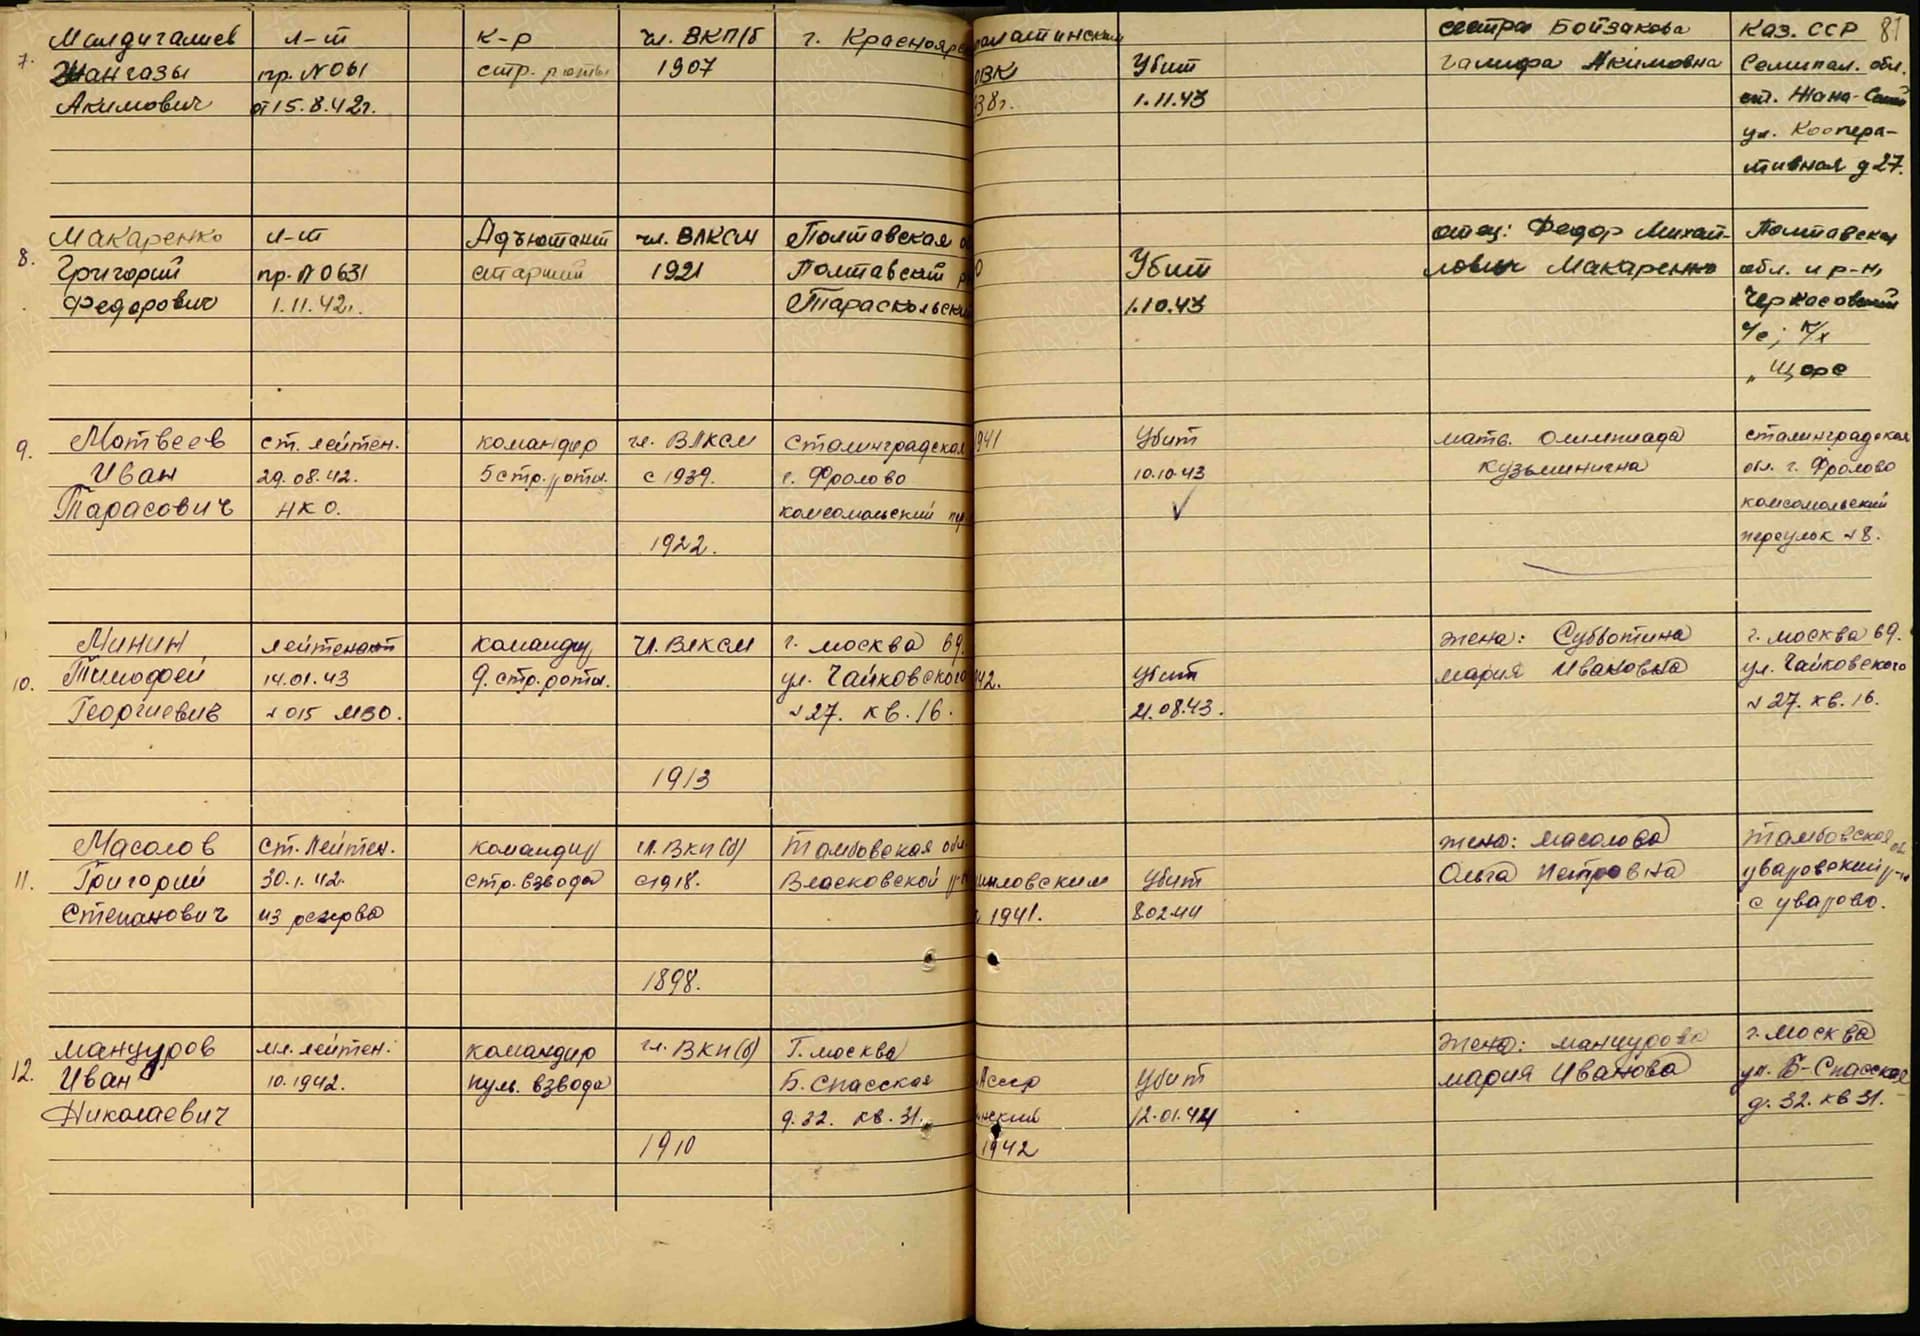 81
7.
Малдигалиев
Жангазы
Акимович
л-т
пр. N 061
от 15.8.42г.
к-р
стр. роты
чл. ВКП/б
1907
г. Краснояр
палатинским
ОВК
38г.
Убит
1.11.43
сестра Бойзакова
Галифа Акимовна
Каз. ССР
Семипал. обл.
ст. Жана-Семей
ул. Коопера-
тивная д 27.
8.
Макаренко
Григорий
Федорович
л-т
пр. N 0631
1.11.42г.
Адъютант
старший
чл. ВЛКСМ
1921
Полтавская о
Полтавский р
Тараскольски
Убит
1.10.43
отец: Федор Михай-
лович Макаренко
Полтавская
обл. и р-н,
Черкасовский
с/с; к/х
„Щорс
9.
Матвеев
Иван
Тарасович
ст. лейтен.
29.08.42.
НКО.
командир
5 стр. роты.
чл. ВЛКСМ
с 1939.
1922.
Сталинградская
г. Фролово
комсомольский пер
941
Убит
10.10.43
мать. Олимпиада
Кузьминична
Сталинградская
обл. г. Фролово
комсомольский
переулок N 8.
10.
Минин
Тимофей
Георгиевич
лейтенант
14.01.43
N 015 МВО.
командир
9. стр. роты.
Чл. ВЛКСМ
1913
г. Москва 69.
ул. Чайковского
N 27. кв. 16.
42.
Убит
21.08.43.
жена: Субботина
Мария Ивановна
г. Москва 69.
ул. Чайковского
N 27. кв. 16.
11.
Масолов
Григорий
Степанович
Ст. Лейтен.
30.1.42.
из резерва
командир
стр. взвода
чл. ВКП(б)
с 1918.
1898.
Тамбовская обл.
Власковской р-н
ловским
1941.
Убит
8.02.44
жена: Масолова
Ольга Петровна
Тамбовская об.
Уваровский р-н
с Уварово.
12.
Манцуров
Иван
Николаевич
мл. лейтен.
10.1942.
командир
пуль. взвода
чл. ВКП(б)
1910
г. Москва
Б. Спасская
д. 32. кв. 31.
Ассср
нский
1942
Убит
12.01.44
жена: Манцурова
Мария Иванова
г. Москва
ул. Б-Спасская
д. 32. кв 31.